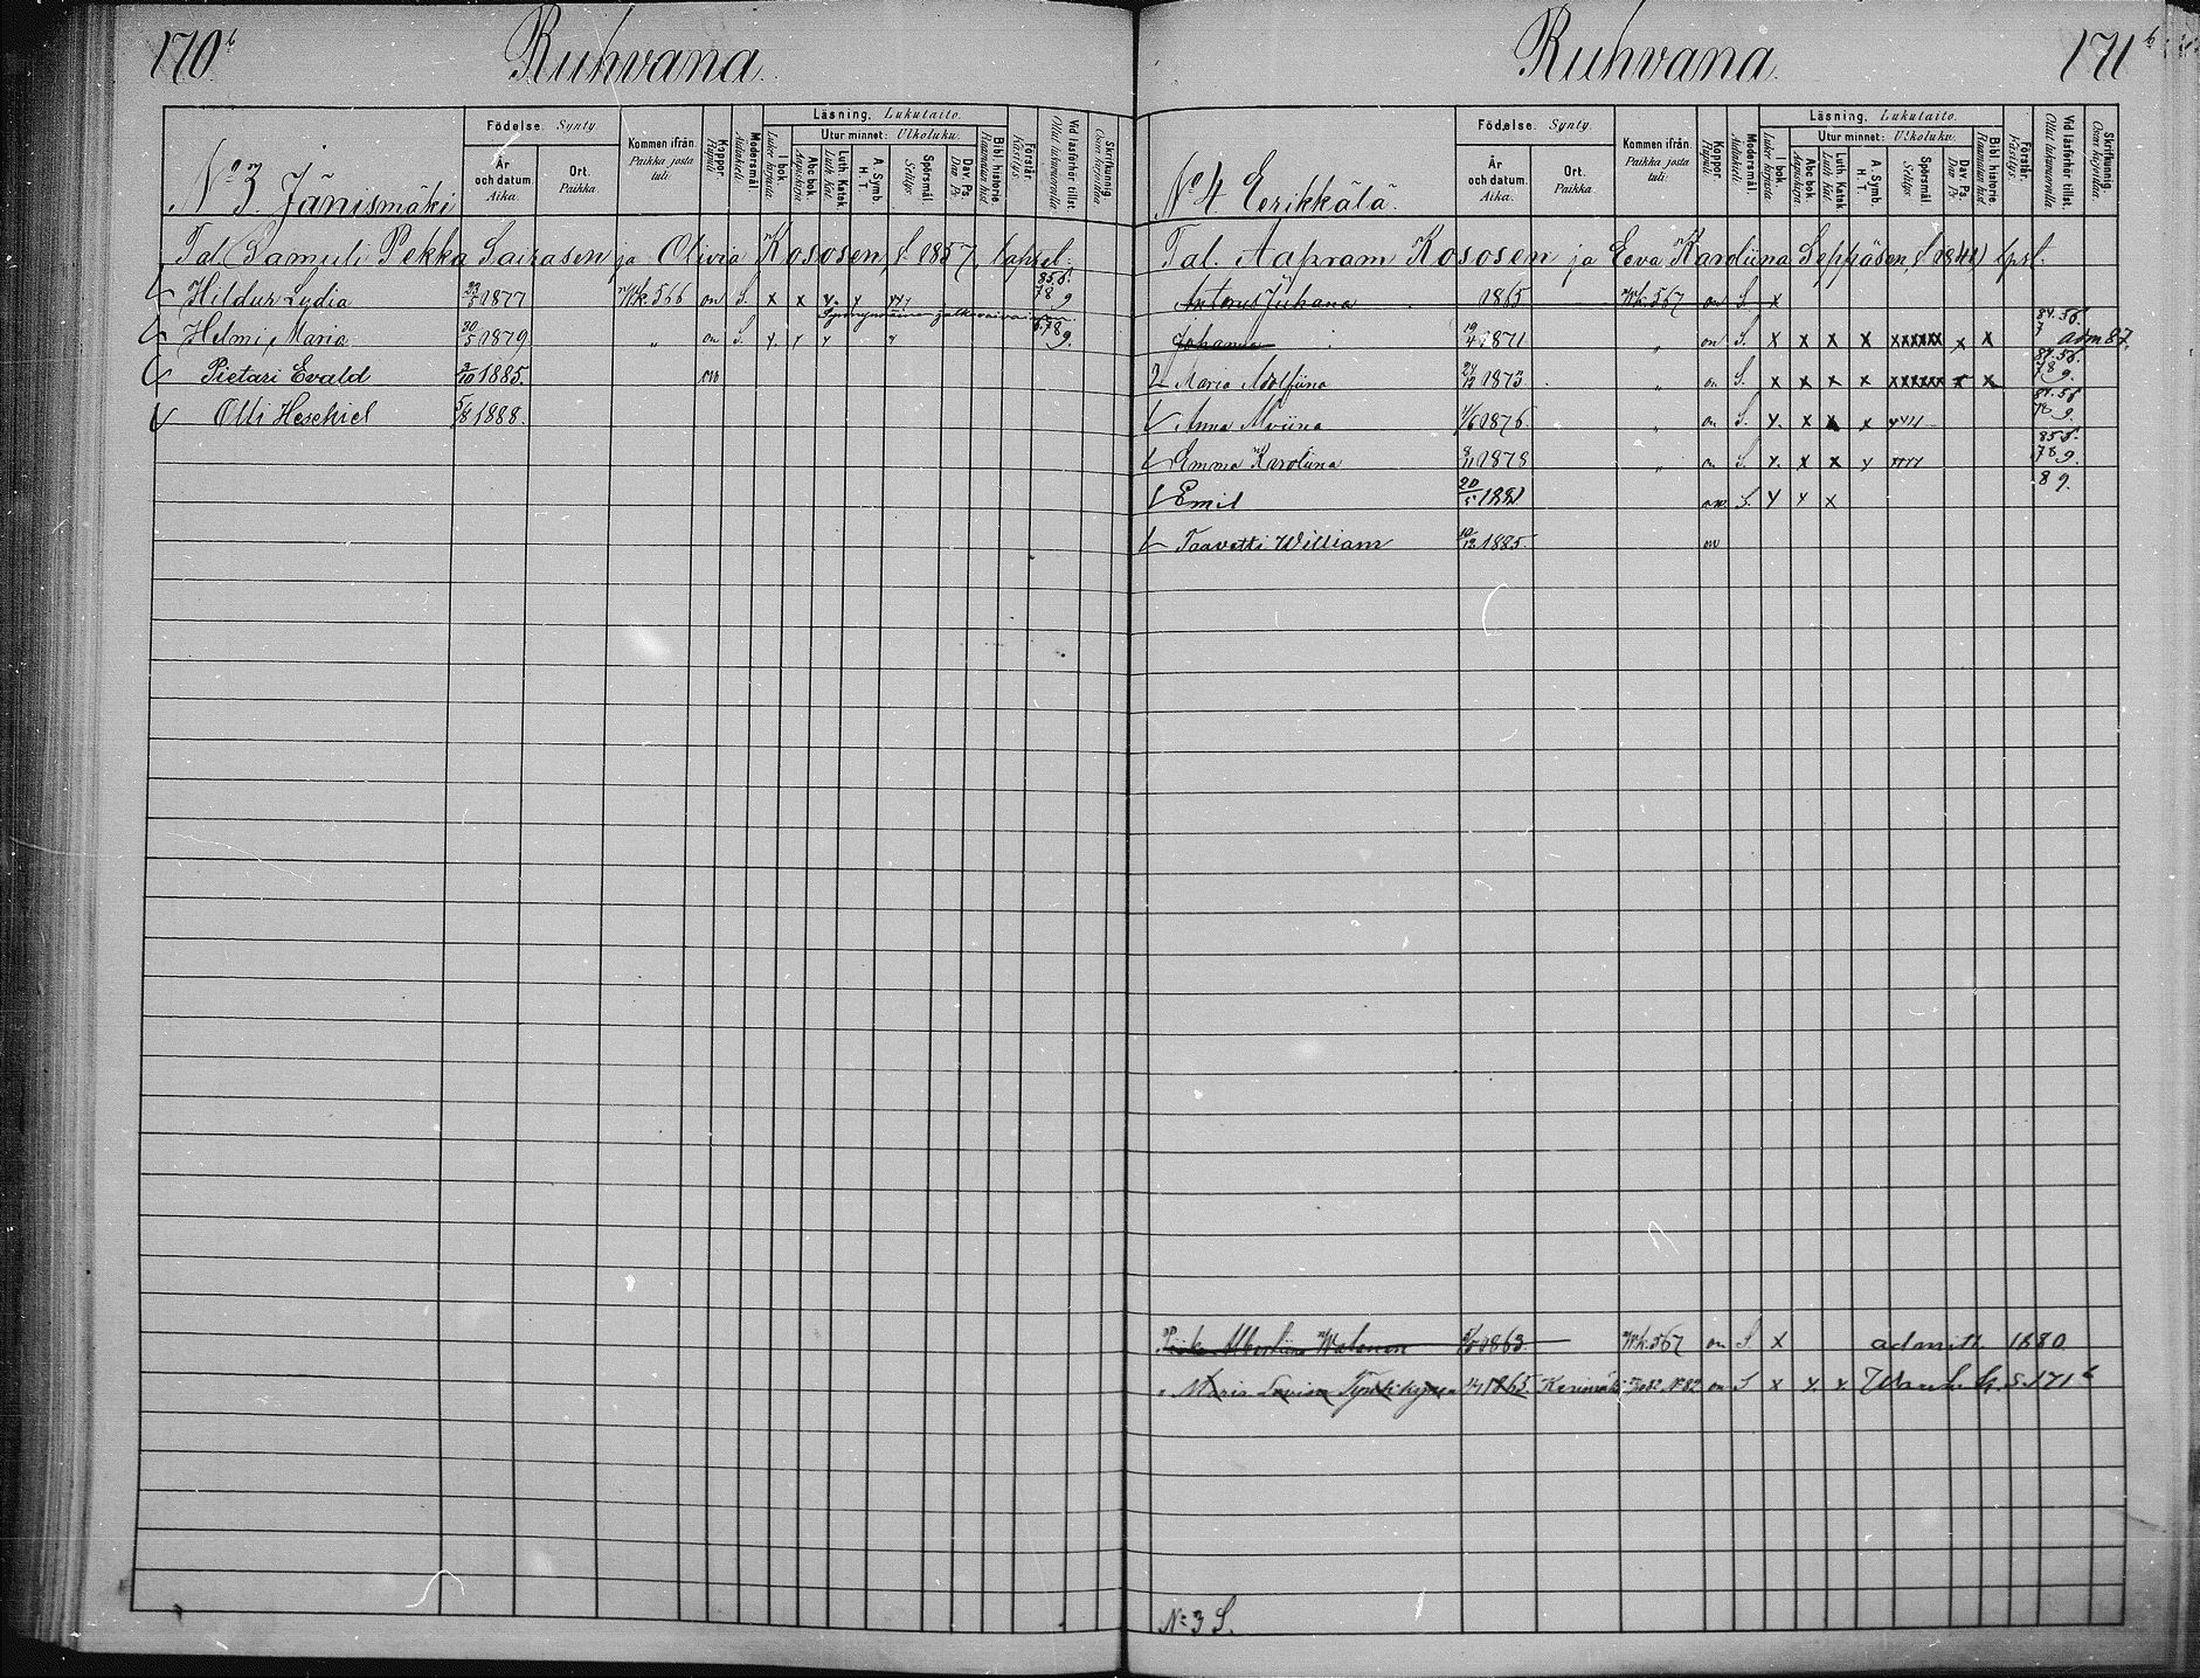 170 b Ruhvana
Födelse. Synty.
Läsning. Lukutaito.
Utur minnet: Ulkoluku.
År och datum. Aika.
Ort. Paikka.
Kommen ifrån. Paikka josta tuli.
Koppor. Rupuli.
Modersmål. Äidinkieli.
I bok. Lukee kirjasta.
Abc bok. Aapiskirja.
Luth. Katek. Luth. Kat.
A. Symb. H. T.
Spörsmål. Selitys.
Dav. Ps. Dav. Ps.
Bibl. historie. Raamatun hist.
Förstår. Käsitys.
Vid läsförhör tillst. Ollut lukuvuorolla.
Skrifkunnig. Osaa kirjoittaa.
No 3. Jänismäki
Tal. Samuli Pekka Sairasen ja Olivia Kososen, s. 1857, lapset:
Hildur Lydia 23/5 1877 Wk. 566 on S. x x x x 85.5. 78 9
Helmi Maria 30/5 1879 " on S. 78 9.
Pietari Evald 2/10 1885. on
Olli Hesekiel 5/8 1888.
Ruhvana 171 b
Födelse. Synty.
Läsning. Lukutaito.
Utur minnet: Ulkoluku.
År och datum. Aika.
Ort. Paikka.
Kommen ifrån. Paikka josta tuli.
Koppor. Rupuli.
Modersmål. Äidinkieli.
I bok. Lukee kirjasta.
Abc bok. Aapiskirja.
Luth. Katek. Luth. Kat.
A. Symb. H. T.
Spörsmål. Selitys.
Dav. Ps. Dav. Ps.
Bibl. historie. Raamatun hist.
Förstår. Käsitys.
Vid läsförhör tillst. Ollut lukuvuorolla.
Skrifkunnig. Osaa kirjoittaa.
No 4. Eerikkälä.
Tal. Aapram Kososen ja Eeva Karoliina Seppäsen, s. 1841) lpst.
Juhana 1865 Wk. 567 on S. x
Johanna 19/4 1871 " on S. x x x x xxxxxx x x 84.56. 7 adm 87.
Maria Adolfiina 24/12 1873. " on S. x x x x xxxxxx x x 84.56. 78 9.
Anna Miina 11/6 1876. " on S. x x x x 84.56 78 9.
Emma Karoliina 8/11 1878 " on S. x x x x 85.5. 78 9.
Emil 20/5 1881 on S. x x x 8 9.
Taavetti William 10/12 1885. on
Piika Albertiina 1863. Wk. 567 on S x admitt. 1880
Maria 1865. Kerimäki on S x x x S. 171 b
No 3 S.